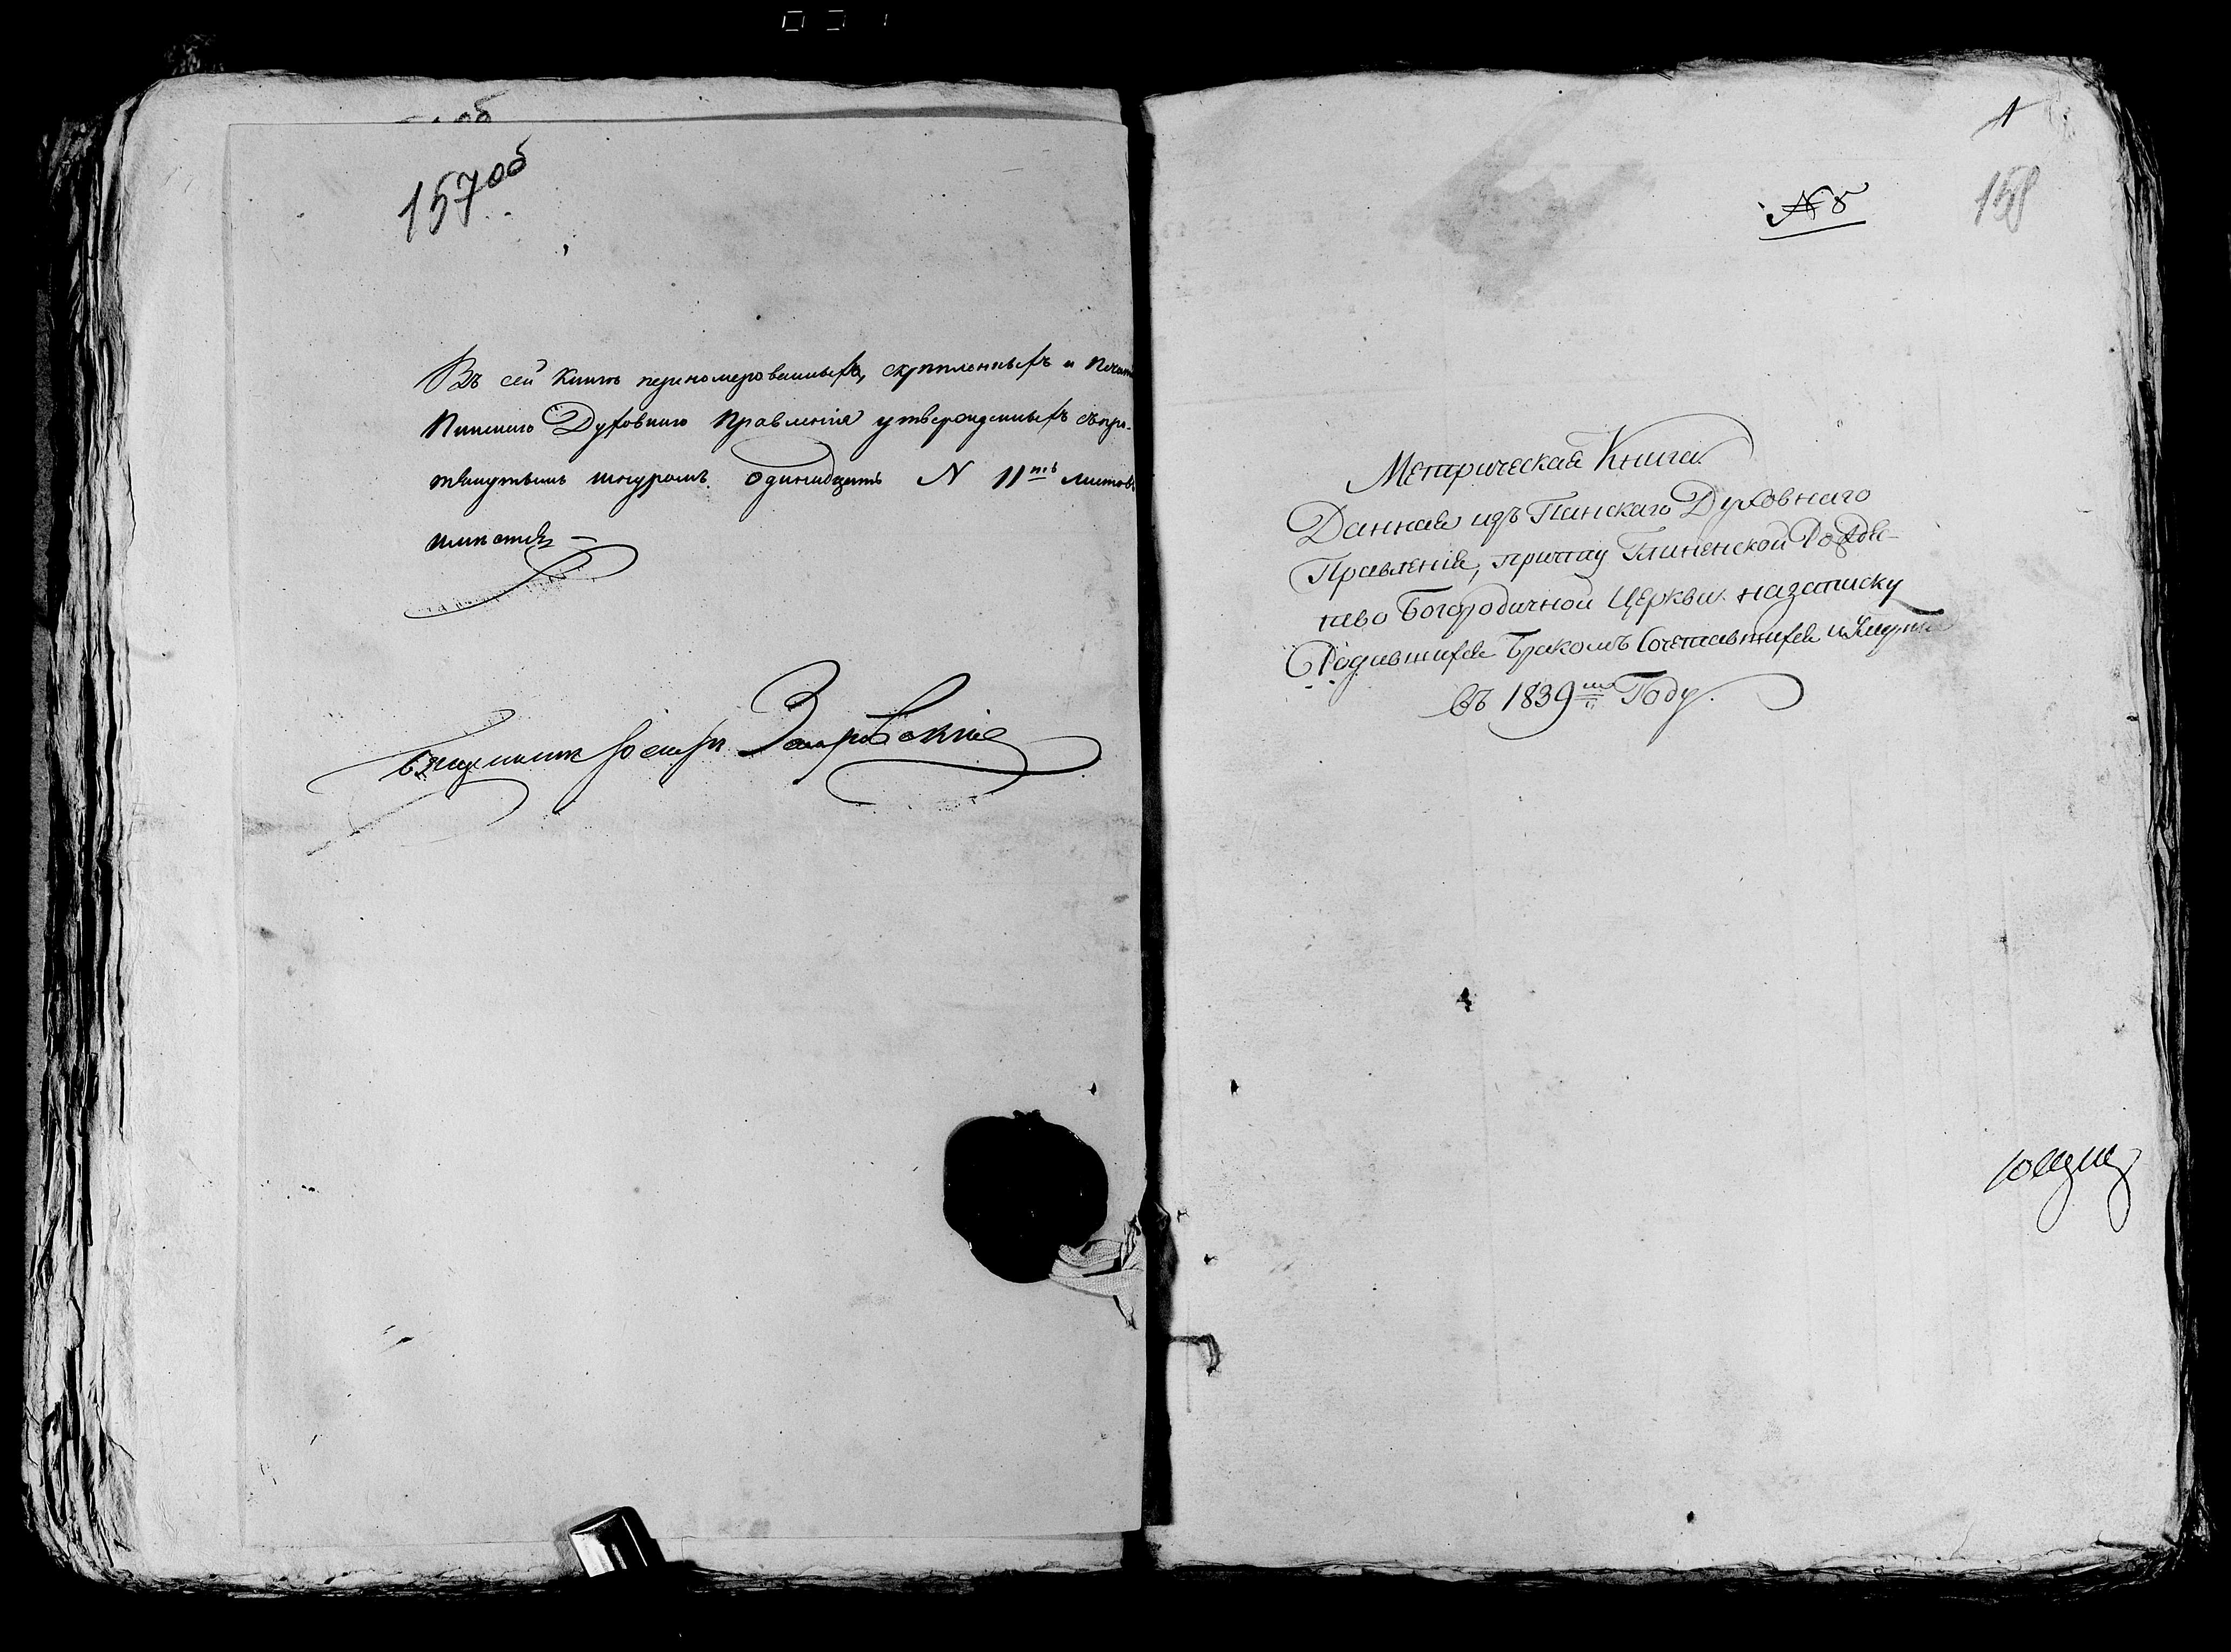 157 об
Въ сей Книгѣ перенумерованныхъ, скрѣпленныхъ и Печат
Пинскаго Духовнаго Правленія утвержденныхъ съ про-
тянутымъ шнуромъ одинадцать N 11ть листовъ
имѣется
1
158
№ 8
Метрическая Книга
Данная изъ Пинскаго Духовнаго
Правленія, причту Глиненской Рожде-
ство Богородичной Церкви на записку
Родившихся Бракомъ Сочетавшихся и Умерш
въ 1839мъ Году.